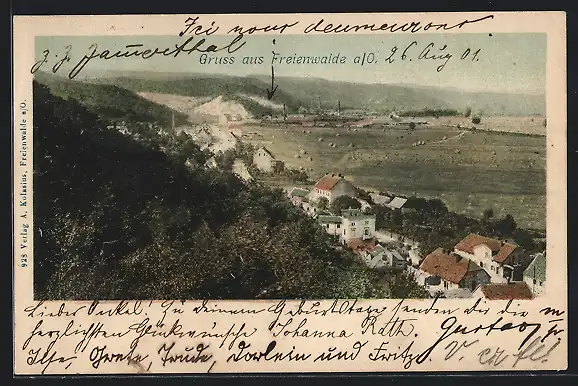 Ici nous demeurons
z. Z. Hammerthal
Gruss aus Freienwalde a/O. 26 Aug 01.
928 Verlag A. Kolasius, Freienwalde a/O.
Lieber Onkel! Zu deinem Geburtstage senden dir die
herzlichsten Glückwünsche Johanna Roth. Gustav,
Ilse, Grete, Trude, Dorlein und Fritz.